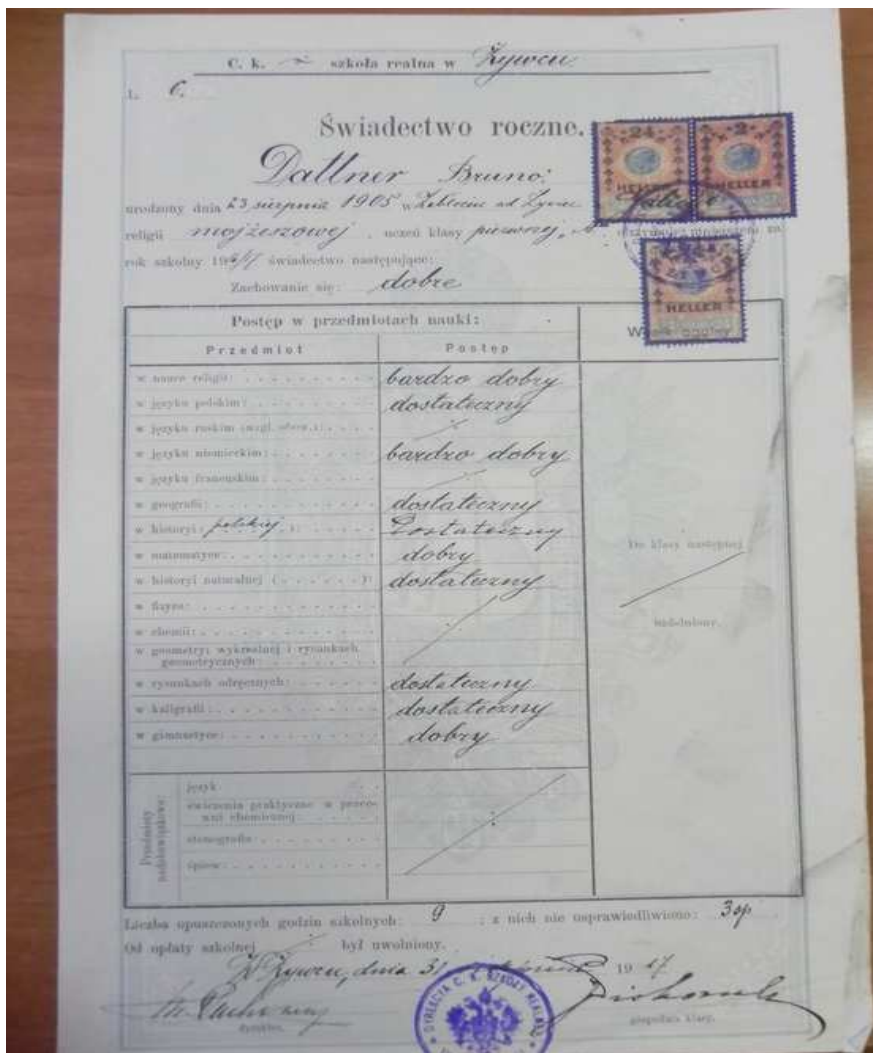 C. k. szkoła realna w Żywcu
L. 6.
Świadectwo roczne.
Dallner Bruno
urodzony dnia 23 sierpnia 1905 w Zabłociu ad Żywiec
religii mojżeszowej, uczeń klasy pierwszej, otrzymuje niniejszem za
rok szkolny 1916/17 świadectwo następujące:
Zachowanie się: dobre
24 HELLER
2 HELLER
HELLER
Postęp w przedmiotach nauki:
Przedmiot Postęp
w nauce religii: bardzo dobry
w języku polskim: dostateczny
w języku ruskim (wzgl. obow.):
w języku niemieckim: bardzo dobry
w języku francuskim:
w geografii: dostateczny
w historyi: polskiej: Dostateczny
w matematyce: dobry
w historyi naturalnej ( ): dostateczny
w fizyce:
w chemii:
w geometryi wykreślnej i rysunkach
geometrycznych:
w rysunkach odręcznych: dostateczny
w kaligrafii: dostateczny
w gimnastyce: dobry
Do klasy następnej
uzdolniony.
Przedmioty
nadobowiązkowe:
język
ćwiczenia praktyczne w praco-
wni chemicznej:
stenografia:
śpiew:
Liczba opuszczonych godzin szkolnych: 9; z nich nie usprawiedliwiono: 3
Od opłaty szkolnej był uwolniony.
W Żywcu, dnia 1917
dyrektor. gospodarz klasy.
DYREKCYA C. K. SZKOŁY REALNEJ